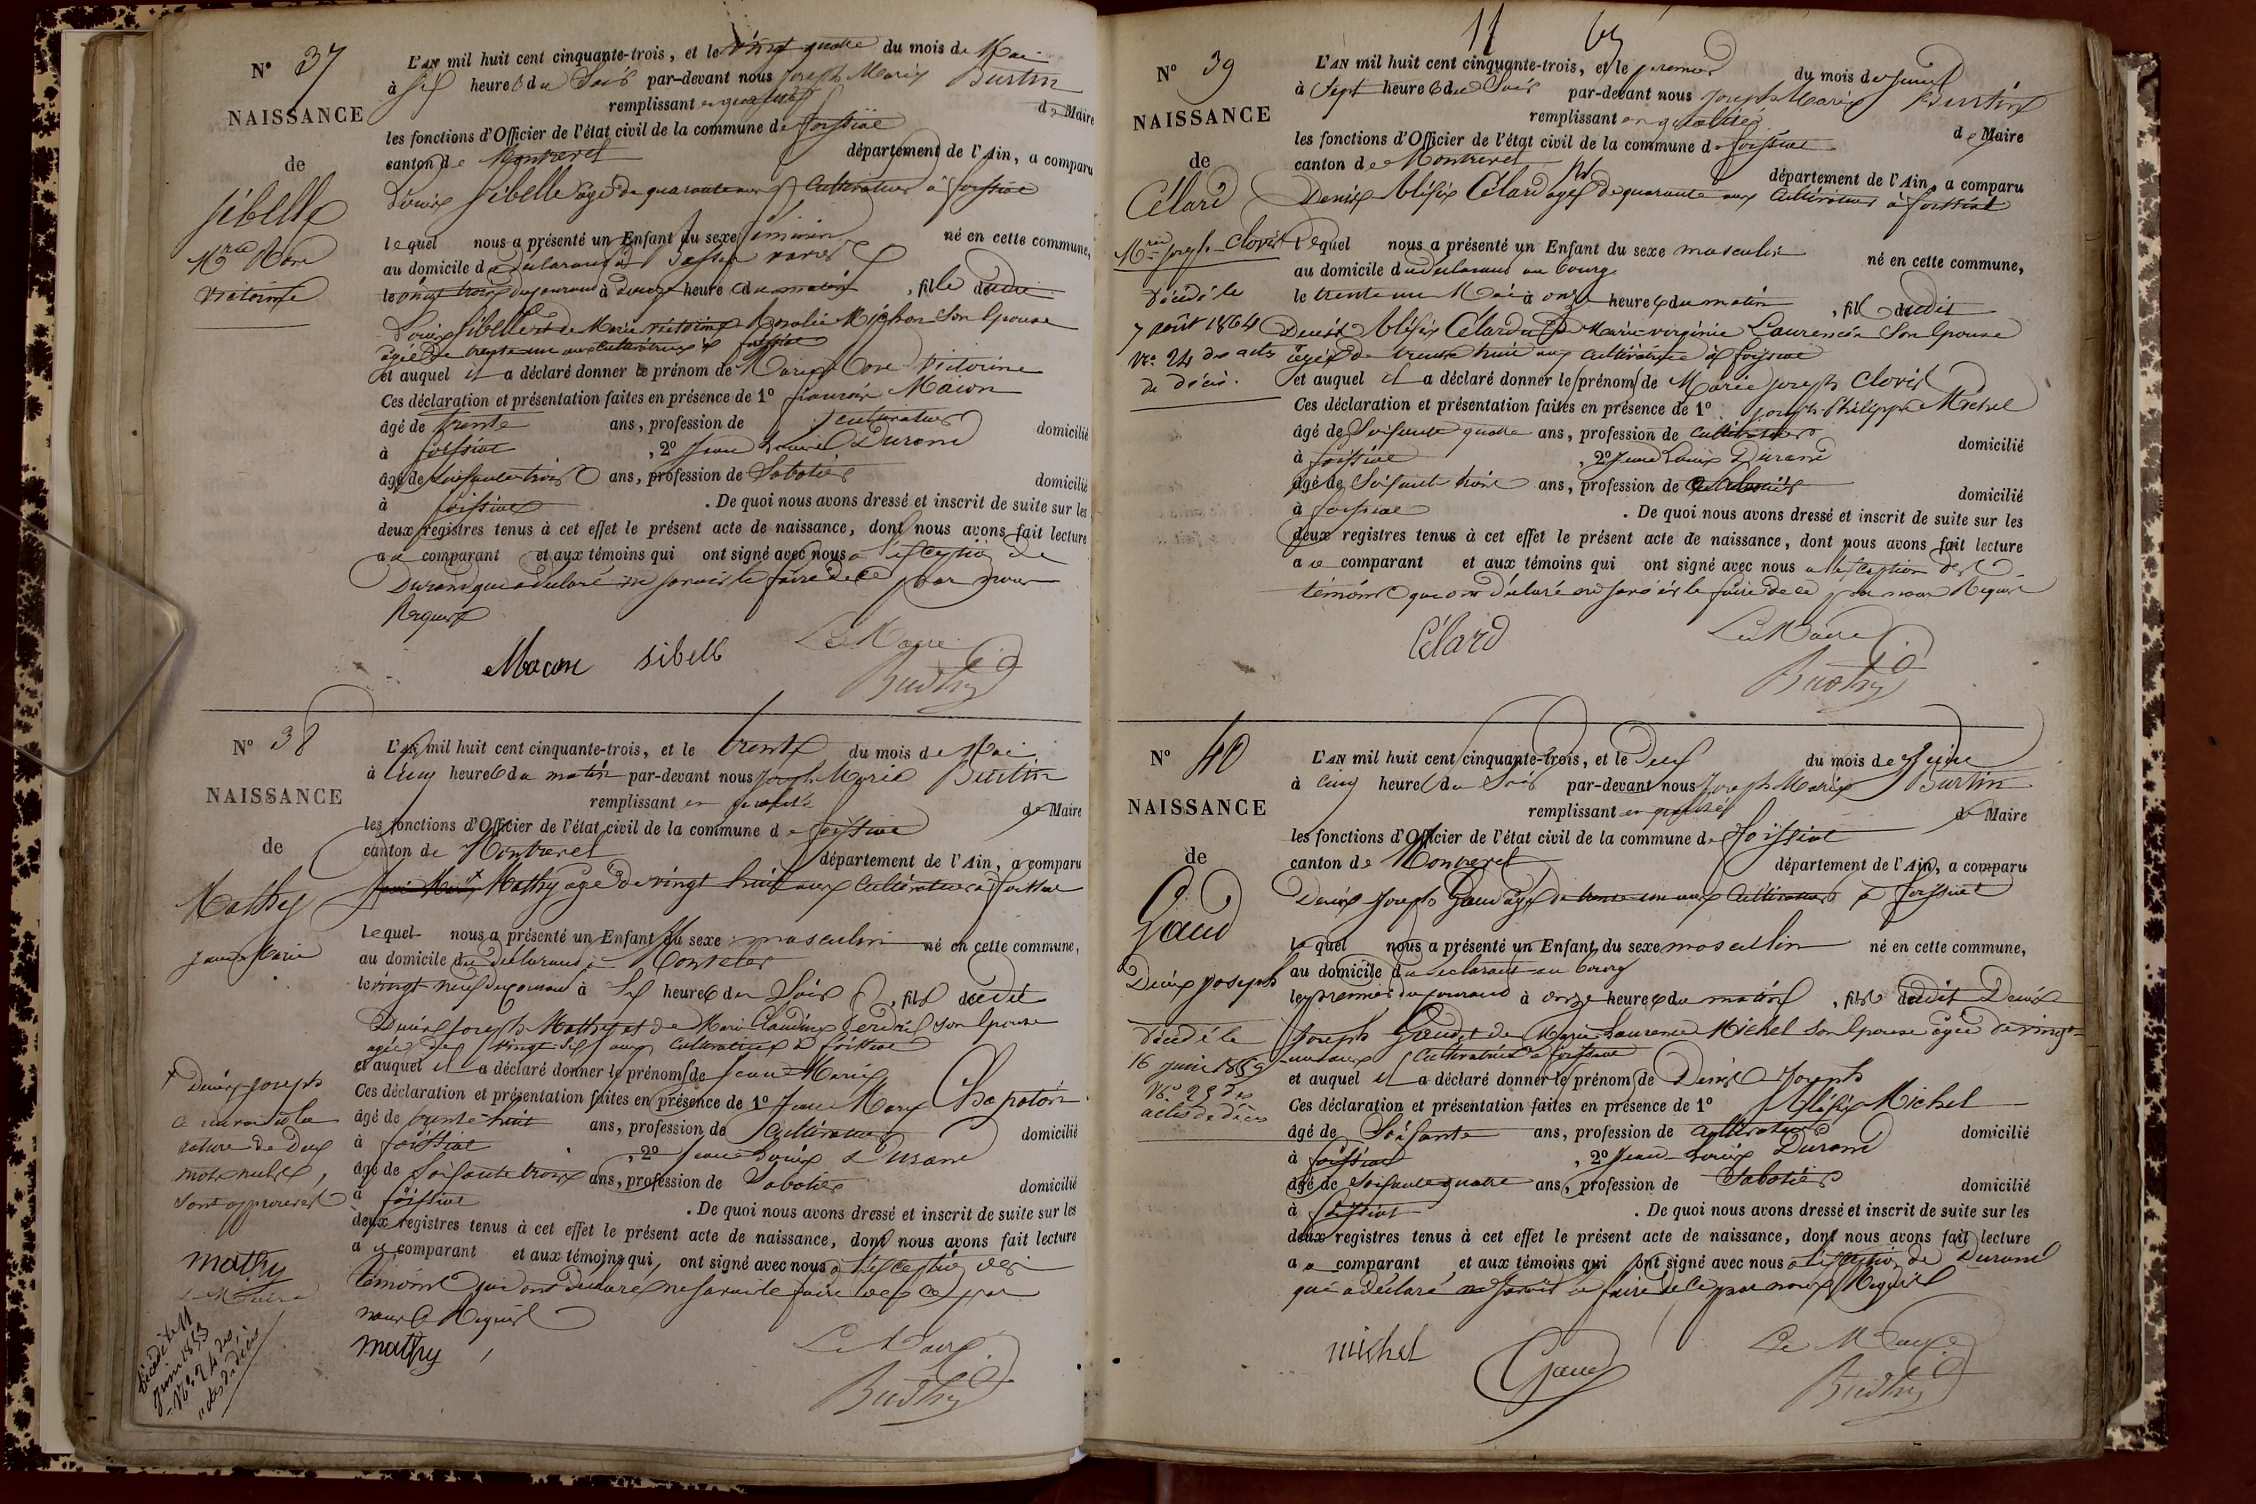 N° 37
NAISSANCE
de
Sibelle
Mrie Rose
victorine
L'AN mil huit cent cinquante-trois, et le vingt quatre du mois de Mai
à six heures du Soir par-devant nous Joseph Marie Burtin
remplissant en qualité de Maire
les fonctions d'Officier de l'état civil de la commune de foissiat
canton de Montrevel département de l'Ain, a comparu
Sibelle agé de quarante ans cultivateur à foissiat
lequel nous a présenté un Enfant du sexe féminin né en cette commune,
au domicile du déclarant
le vingt trois du courant à heures du matin, fille dudit
Sibelle et de Marie victorine Rosalie Michon Son épouse
agée de trente un ans cultivatrice à foissiat
et auquel il a déclaré donner le prénom de Marie Rose victorine
Ces déclaration et présentation faites en présence de 1° françois Macon
âgé de trente ans, profession de cultivateur domicilié
à foissiat, 2° Jean Louis Durand
âgé de soixante trois ans, profession de Sabotier domicilié
à foissiat. De quoi nous avons dressé et inscrit de suite sur les
deux registres tenus à cet effet le présent acte de naissance, dont nous avons fait lecture
au comparant et aux témoins qui ont signé avec nous à l'exception de
Durand qui a déclaré ne savoir le faire de ce par nous
Requis
Macon sibelle Le Maire
Burtin
N° 38
NAISSANCE
de
Mathy
Jean Marie
L'AN mil huit cent cinquante-trois, et le trente du mois de Mai
à cinq heures du matin par-devant nous Joseph Marie Burtin
remplissant en qualité de Maire
les fonctions d'Officier de l'état civil de la commune de foissiat
canton de Montrevel département de l'Ain, a comparu
Mathy agé de vingt huit ans cultivateur à foissiat
lequel nous a présenté un Enfant du sexe masculin né en cette commune,
au domicile du déclarant
le vingt neuf du courant à Six heures du Soir, fils dudit
Denis Joseph Mathy et de Marie Claudine son épouse
agée de vingt six ans cultivatrice à foissiat
et auquel il a déclaré donner le prénom de Jean Marie
Ces déclaration et présentation faites en présence de 1° Jean Marie
âgé de trente huit ans, profession de Cultivateur domicilié
à foissiat, 2° Jean Louis Durand
âgé de Soixante trois ans, profession de Sabotier domicilié
à foissiat. De quoi nous avons dressé et inscrit de suite sur les
deux registres tenus à cet effet le présent acte de naissance, dont nous avons fait lecture
au comparant et aux témoins qui ont signé avec nous à l'exception des
témoins qui ont déclaré ne savoir le faire de ce par
nous Requis
mathy Le Maire
Burtin
+ Denis Joseph
rature de deux
mots nuls,
sont approuvés
mathy
Le Maire
Décédé le 11
Juin 1853
N° 24 des
actes de décès
11
N° 39
NAISSANCE
de
Célard
Mrie Joseph Clovis
Décédé le
7 août 1864
No 24 des actes
de décès.
L'AN mil huit cent cinquante-trois, et le premier du mois de Juin
à Sept heures du Soir par-devant nous Joseph Marie Burtin
remplissant en qualité de Maire
les fonctions d'Officier de l'état civil de la commune de foissiat
canton de Montrevel département de l'Ain, a comparu
Denis Alexis Célard agé de quarante ans cultivateur à foissiat
lequel nous a présenté un Enfant du sexe masculin né en cette commune,
au domicile du déclarant au bourg
le trente un Mai à onze heures du matin, fils dudit
Denis Alexis Célard et de Marie virginie Laurencin Son épouse
agée de trente huit ans cultivatrice à foissiat
et auquel il a déclaré donner les prénoms de Marie joseph Clovis
Ces déclaration et présentation faites en présence de 1° Joseph Philippe Michel
âgé de Soixante quatre ans, profession de cultivateur domicilié
à foissiat, 2° Jean Louis Durand
âgé de Soixante trois ans, profession de domicilié
à foissiat. De quoi nous avons dressé et inscrit de suite sur les
deux registres tenus à cet effet le présent acte de naissance, dont nous avons fait lecture
au comparant et aux témoins qui ont signé avec nous à l'exception des
témoins qui ont déclaré ne savoir le faire de ce par nous Requis
Célard Le Maire
Burtin
N° 40
NAISSANCE
de
Gaud
Denis Joseph
Décédé le
16 juin 1859
No 25 des
actes de décès
L'AN mil huit cent cinquante-trois, et le Deux du mois de Juin
à cinq heures du Soir par-devant nous Joseph Marie Burtin
remplissant en qualité de Maire
les fonctions d'Officier de l'état civil de la commune de foissiat
canton de Montrevel département de l'Ain, a comparu
Denis Joseph Gaud agé de trente un ans cultivateur à foissiat
lequel nous a présenté un Enfant du sexe masculin né en cette commune,
au domicile du déclarant au bourg
le premier du courant à onze heures du matin, fils dudit Denis
Joseph Gaud et de Marie Laurence Michel Son épouse agée de vingt
un ans cultivatrice à foissiat
et auquel il a déclaré donner les prénoms de Denis Joseph
Ces déclaration et présentation faites en présence de 1° Alexis Michel
âgé de Soixante ans, profession de cultivateur domicilié
à foissiat, 2° Jean Louis Durand
âgé de Soixante quatre ans, profession de Sabotier domicilié
à foissiat. De quoi nous avons dressé et inscrit de suite sur les
deux registres tenus à cet effet le présent acte de naissance, dont nous avons fait lecture
au comparant et aux témoins qui ont signé avec nous à l'exception de Durand
qui a déclaré ne savoir le faire de ce par nous Requis
michel Gaud Le Maire
Burtin